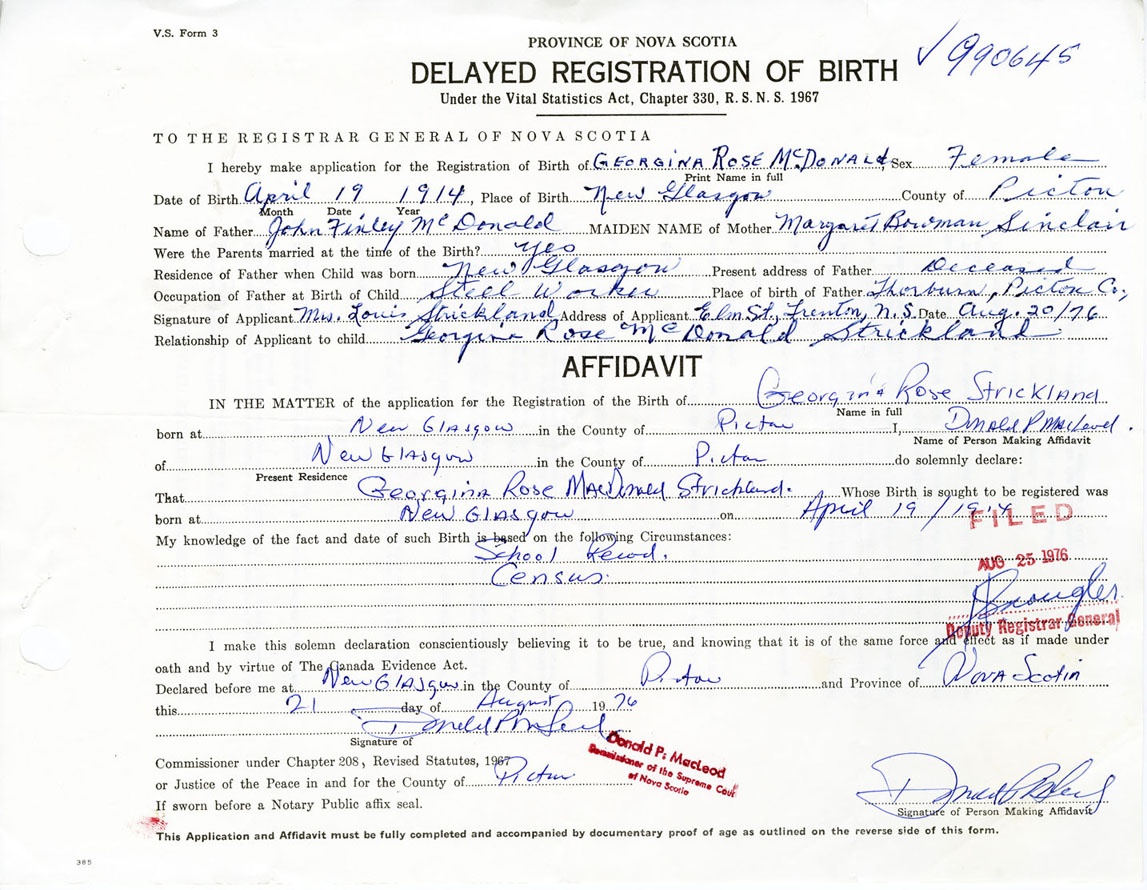 V.S. Form 3
✓990645
PROVINCE OF NOVA SCOTIA
DELAYED REGISTRATION OF BIRTH
Under the Vital Statistics Act, Chapter 330, R.S.N.S. 1967
TO THE REGISTRAR GENERAL OF NOVA SCOTIA
I hereby make application for the Registration of Birth of GEORGINA ROSE McDONALD, Sex Female
Print Name in full
Date of Birth April 19 1914, Place of Birth New Glasgow County of Picton
Month Date Year
Name of Father John Finley McDonald MAIDEN NAME of Mother Margaret Bowman Sinclair
Were the Parents married at the time of the Birth? yes
Residence of Father when Child was born New Glasgow Present address of Father Deceased
Occupation of Father at Birth of Child Steel Worker Place of birth of Father Thorburn, Picton Co.,
Signature of Applicant Mrs. Louis Strickland Address of Applicant Elm St., Trenton, N.S. Date Aug. 20/76
Relationship of Applicant to child Georgina Rose McDonald Strickland
AFFIDAVIT
IN THE MATTER of the application for the Registration of the Birth of Georgina Rose Strickland
Name in full
born at New Glasgow in the County of Pictou I, Donald P. MacLeod.
Name of Person Making Affidavit
of New Glasgow in the County of Pictou do solemnly declare:
Present Residence
That Georgina Rose MacDonald Strickland. Whose Birth is sought to be registered was
born at New Glasgow on April 19/1914
FILED
My knowledge of the fact and date of such Birth is based on the following Circumstances:
School Record.
AUG 25 1976
Census.
Deputy Registrar General
I make this solemn declaration conscientiously believing it to be true, and knowing that it is of the same force and effect as if made under
oath and by virtue of The Canada Evidence Act.
Declared before me at New Glasgow in the County of Pictou and Province of Nova Scotia
this 21 day of August 1976
Donald P. MacLeod
Signature of
Donald P. MacLeod
Commissioner of the Supreme Court
of Nova Scotia
Commissioner under Chapter 208, Revised Statutes, 1967
or Justice of the Peace in and for the County of Pictou
Donald P. MacLeod
Signature of Person Making Affidavit
If sworn before a Notary Public affix seal.
This Application and Affidavit must be fully completed and accompanied by documentary proof of age as outlined on the reverse side of this form.
385